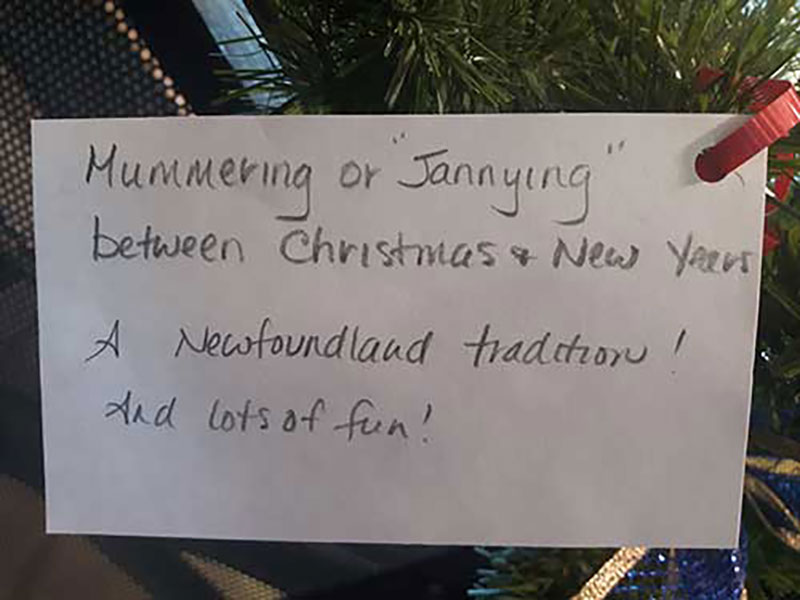 Mummering or "Jannying"
between Christmas & New Years
A Newfoundland tradition!
And lots of fun!